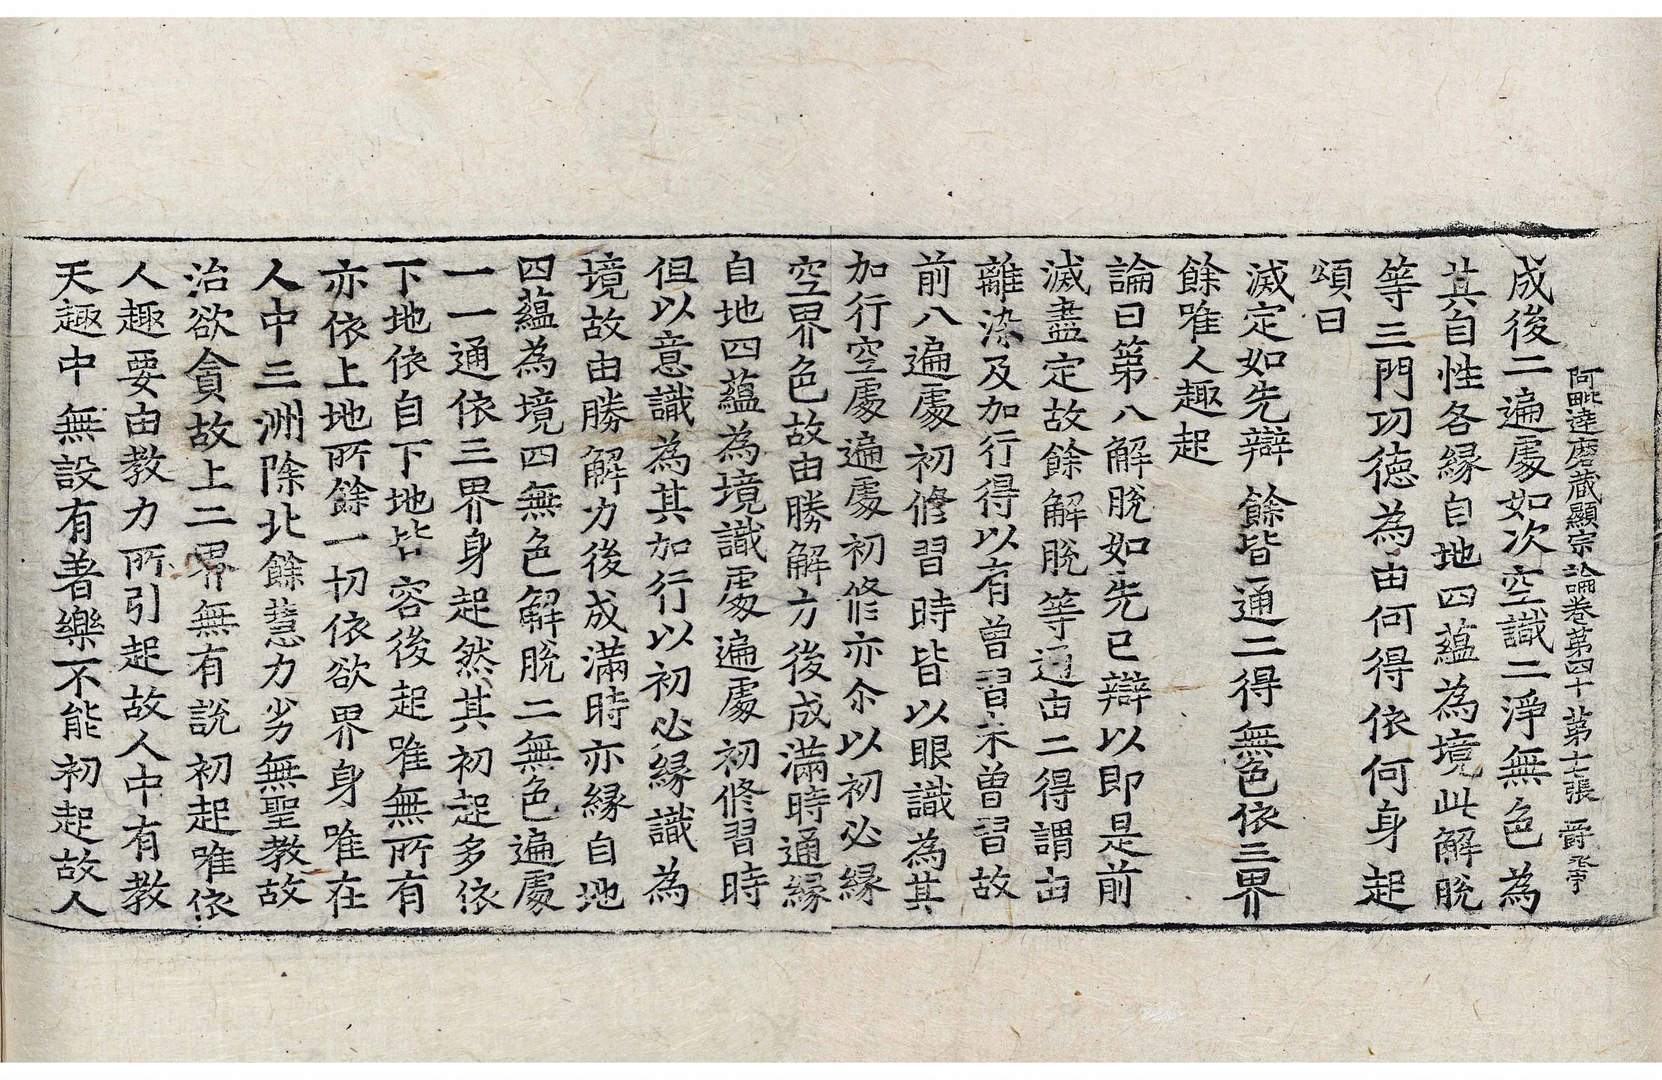 阿毗達磨蔵顯宗論卷第四十 第七張 爵
成後二遍處如次空識二淨無色為
其自性各縁自地四蘊為境此解脫
等三門功德為由何得依何身起
頌曰
滅定如先辯 餘皆通二得無色依三界
餘唯人趣起
論曰第八解脫如先已辯以即是前
滅盡定故餘解脫等通由二得謂由
離染及加行得以有曾習未曾習故
前八遍處初修習時皆以眼識為其
加行空處遍處初修亦尒以初必縁
空界色故由勝解力後成滿時通縁
自地四蘊為境識處遍處初修習時
但以意識為其加行以初必縁識為
境故由勝解力後成滿時亦縁自地
四蘊為境四無色解脫二無色遍處
一一通依三界身起然其初起多依
下地依自下地皆容後起唯無所有
亦依上地所餘一切依欲界身唯在
人中三洲除北餘慧力劣無聖教故
治欲貪故上二界無有說初起唯依
人趣要由教力所引起故人中有教
天趣中無設有著樂不能初起故人